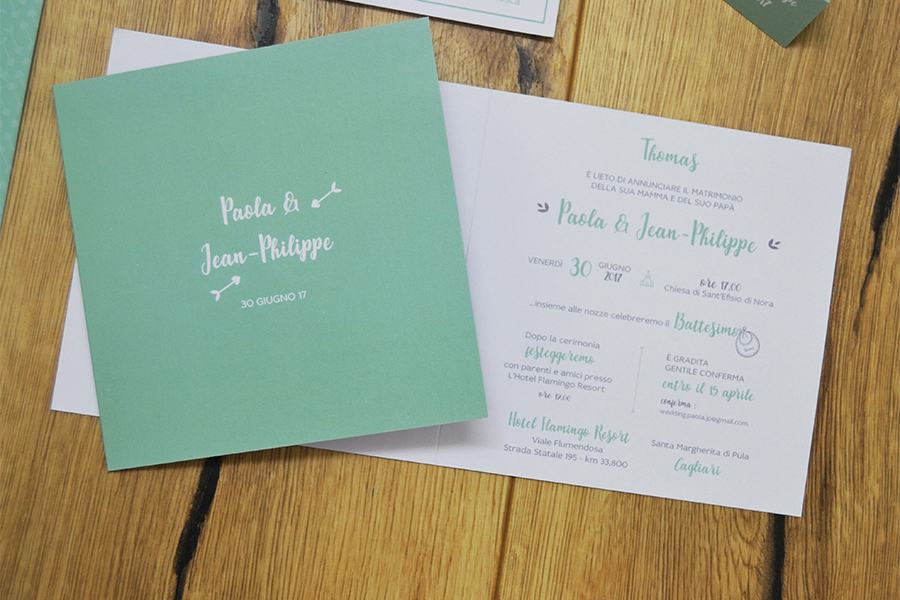 Paola &
Jean-Philippe
30 GIUGNO 17
Thomas
È LIETO DI ANNUNCIARE IL MATRIMONIO
DELLA SUA MAMMA E DEL SUO PAPÀ
Paola & Jean-Philippe
VENERDÌ 30 GIUGNO 2017
ore 17.00
Chiesa di Sant'Efisio di Nora
...insieme alle nozze celebreremo il Battesimo
Dopo la cerimonia
festeggeremo
con parenti e amici presso
L'Hotel Flamingo Resort
Hotel Flamingo Resort
Viale Flumendosa
Strada Statale 195 - km 33,800
È GRADITA
GENTILE CONFERMA
entro il 15 aprile
conferma :
wedding.paola.jp@gmail.com
Santa Margherita di Pula
Cagliari
17